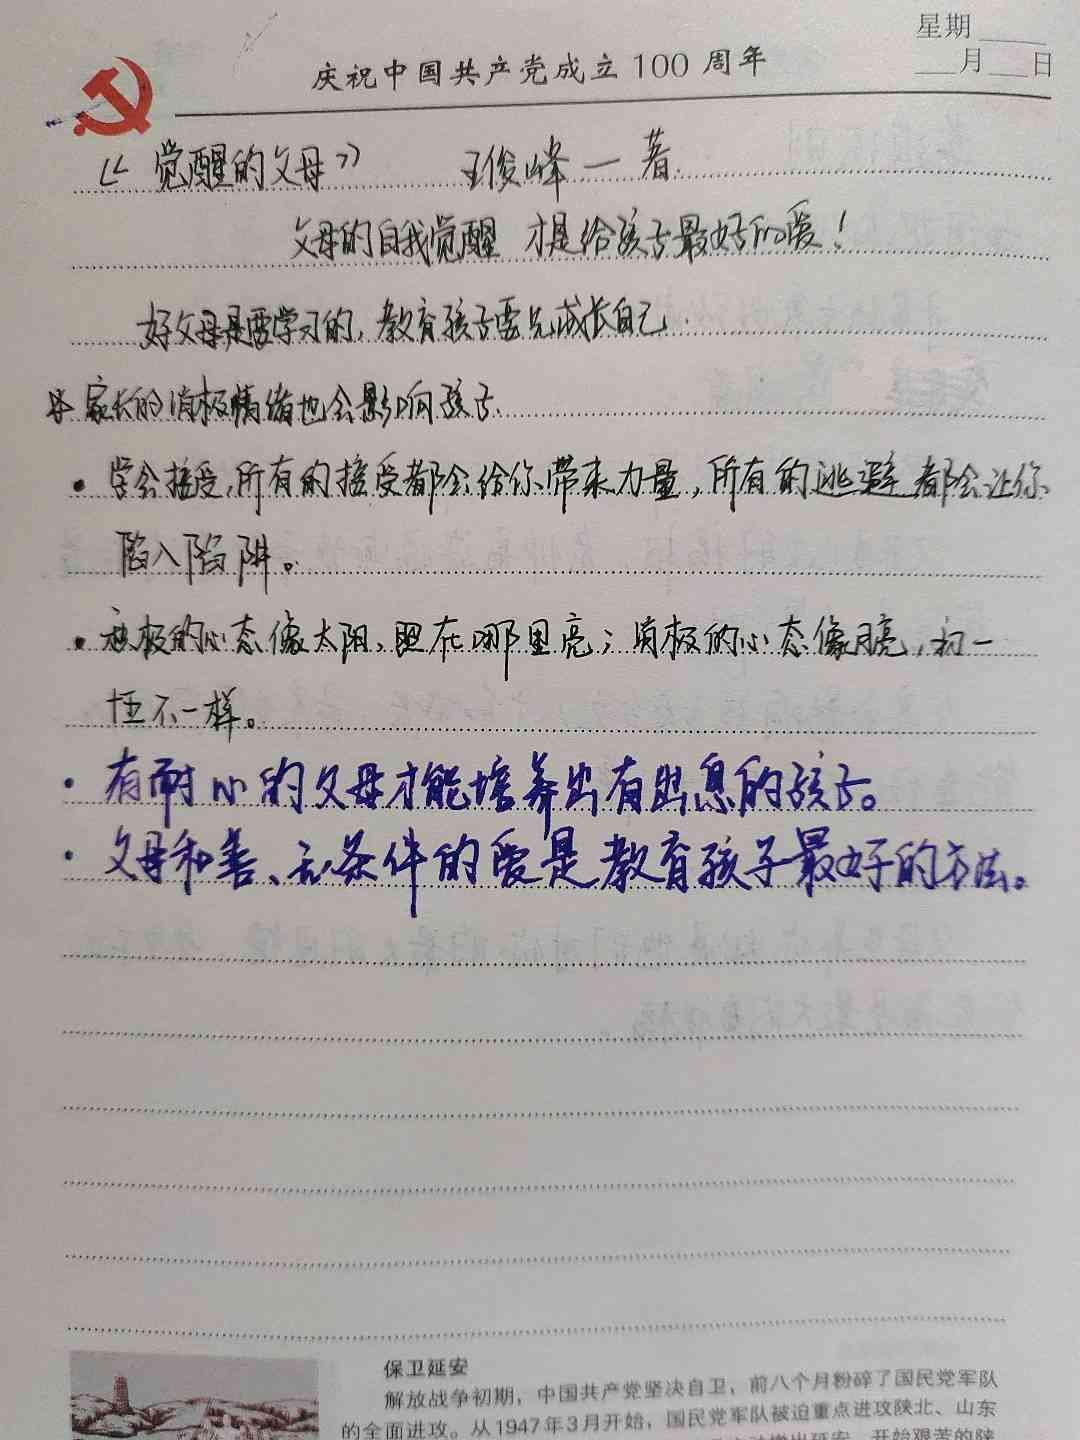 星期
月 日
庆祝中国共产党成立100周年
《觉醒的父母》 王俊峰一著
父母的自我觉醒 才是给孩子最好的爱！
好父母是要学习的，教育孩子要先成长自己.
家长的消极情绪也会影响孩子.
• 学会接受，所有的接受都会给你带来力量，所有的逃避都会让你
陷入陷阱。
• 积极的心态像太阳，照在哪里亮；消极的心态像月亮，初一
不一样。
• 有耐心的父母才能培养出有出息的孩子。
• 父母和善、无条件的爱是教育孩子最好的方法。
保卫延安
解放战争初期，中国共产党坚决自卫，前八个月粉碎了国民党军队
的全面进攻。从1947年3月开始，国民党军队被迫重点进攻陕北、山东
撤出延安，开始艰苦的陕